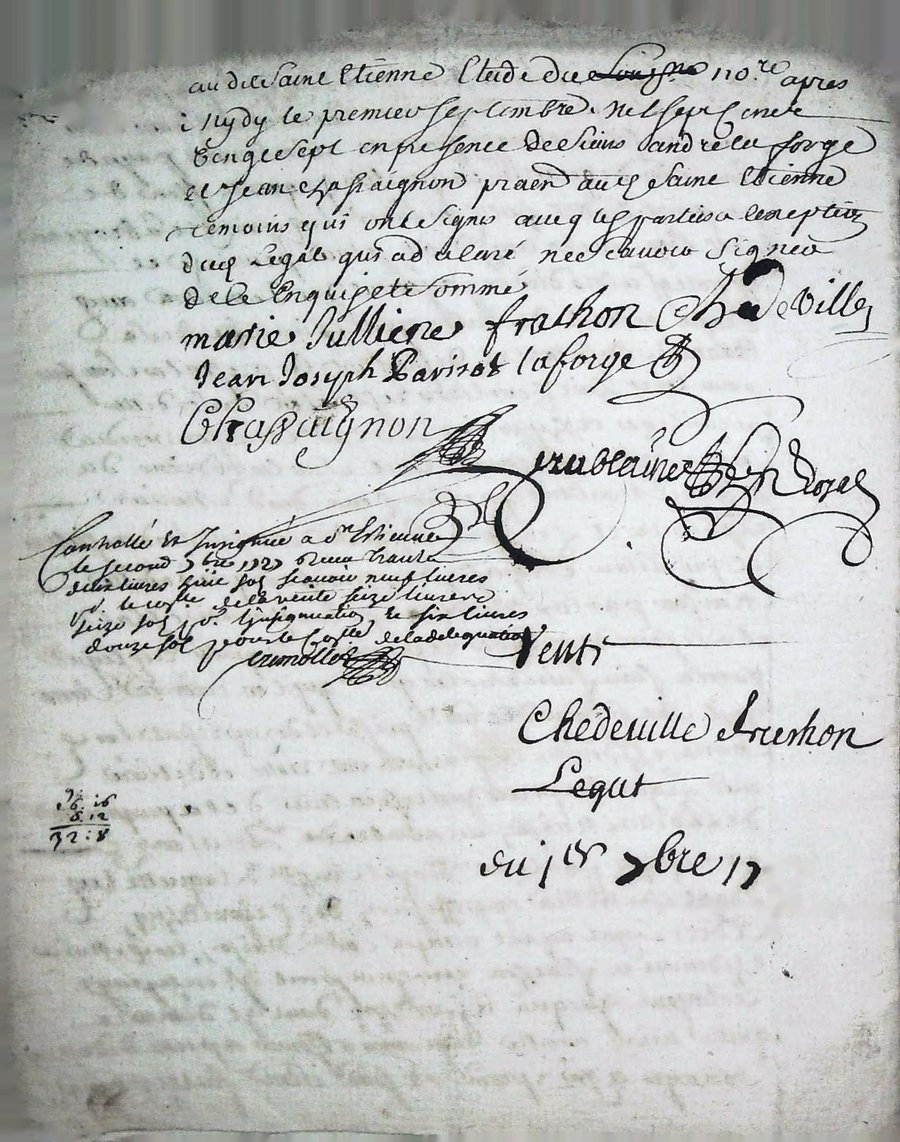 audit Saint Etienne Etude du no.re apres
midy le premier septembre mil sept cent
vingt sept en presence de sieurs andre la forge
et Jean Chassaignon praen aud Saint Etienne
temoins qui ont signé avec les parties a lexception
dud Legat qui a declaré ne scavoir signer
de ce Enquis et sommé
marie Jullienne frachon Chedeville
Jean Joseph Parizot laforge
Chassaignon
Royal
Controllé et Insignué a St Estienne
le second 7bre 1727 receu trante
deux livres huit sols scavoir neuf livres
pr. le colle de la vente seize livres
seize sols pr. l'Insignuation et six livres
douze sols pour le colle de la delegation
Vente
Chedeville frachon
Legat
du 1er 7bre 17
9:
16:16
6:12
32:8